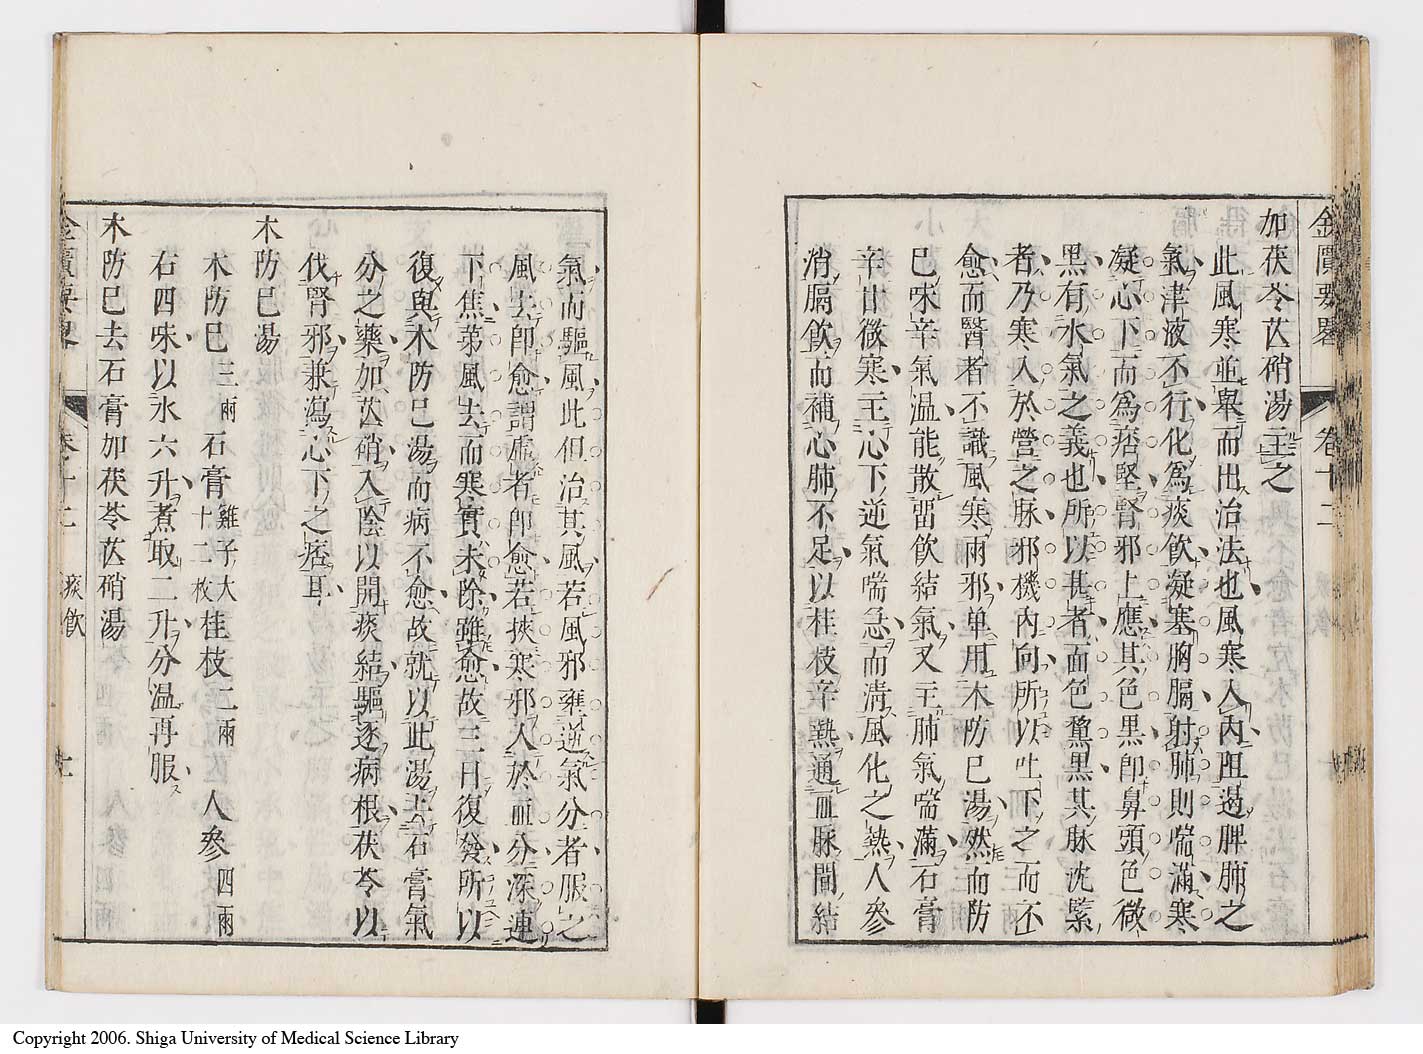 金匱要畧　卷十二
加茯苓芒硝湯主之
此風寒並舉而出治法也風寒入內阻遏脾肺之
氣津液不行化為痰飲凝塞胸膈射肺則喘滿寒
凝心下而為痞堅腎邪上應其色黑卽鼻頭色微
黑有水氣之義也所以甚者面色黧黑其脉沈緊
者乃寒入於營之脉邪機內向所以吐下之而不
愈而醫者不識風寒兩邪单用木防已湯然而防
已味辛氣温能散畱飲結氣又主肺氣喘滿石膏
辛甘微寒主心下逆氣喘急而清風化之熱人參
消膈飲而補心肺不足以桂枝辛熱通血脉開結
氣而驅風此但治其風若風邪壅逆氣分者服之
風去卽愈謂虛者卽愈若挾寒邪入於血分深連
下焦苐風去而寒實未除雖愈故三日復發所以
復與木防已湯而病不愈故就以此湯去石膏氣
分之藥加芒硝入陰以開痰結驅逐病根茯苓以
伐腎邪兼瀉心下之痞耳
木防已湯
木防已三兩　石膏雞子大十二枚　桂枝二兩　人參四兩
右四味以水六升煮取二升分温再服
木防已去石膏加茯苓芒硝湯
金匱要畧　卷十二　痰飲
Copyright 2006. Shiga University of Medical Science Library